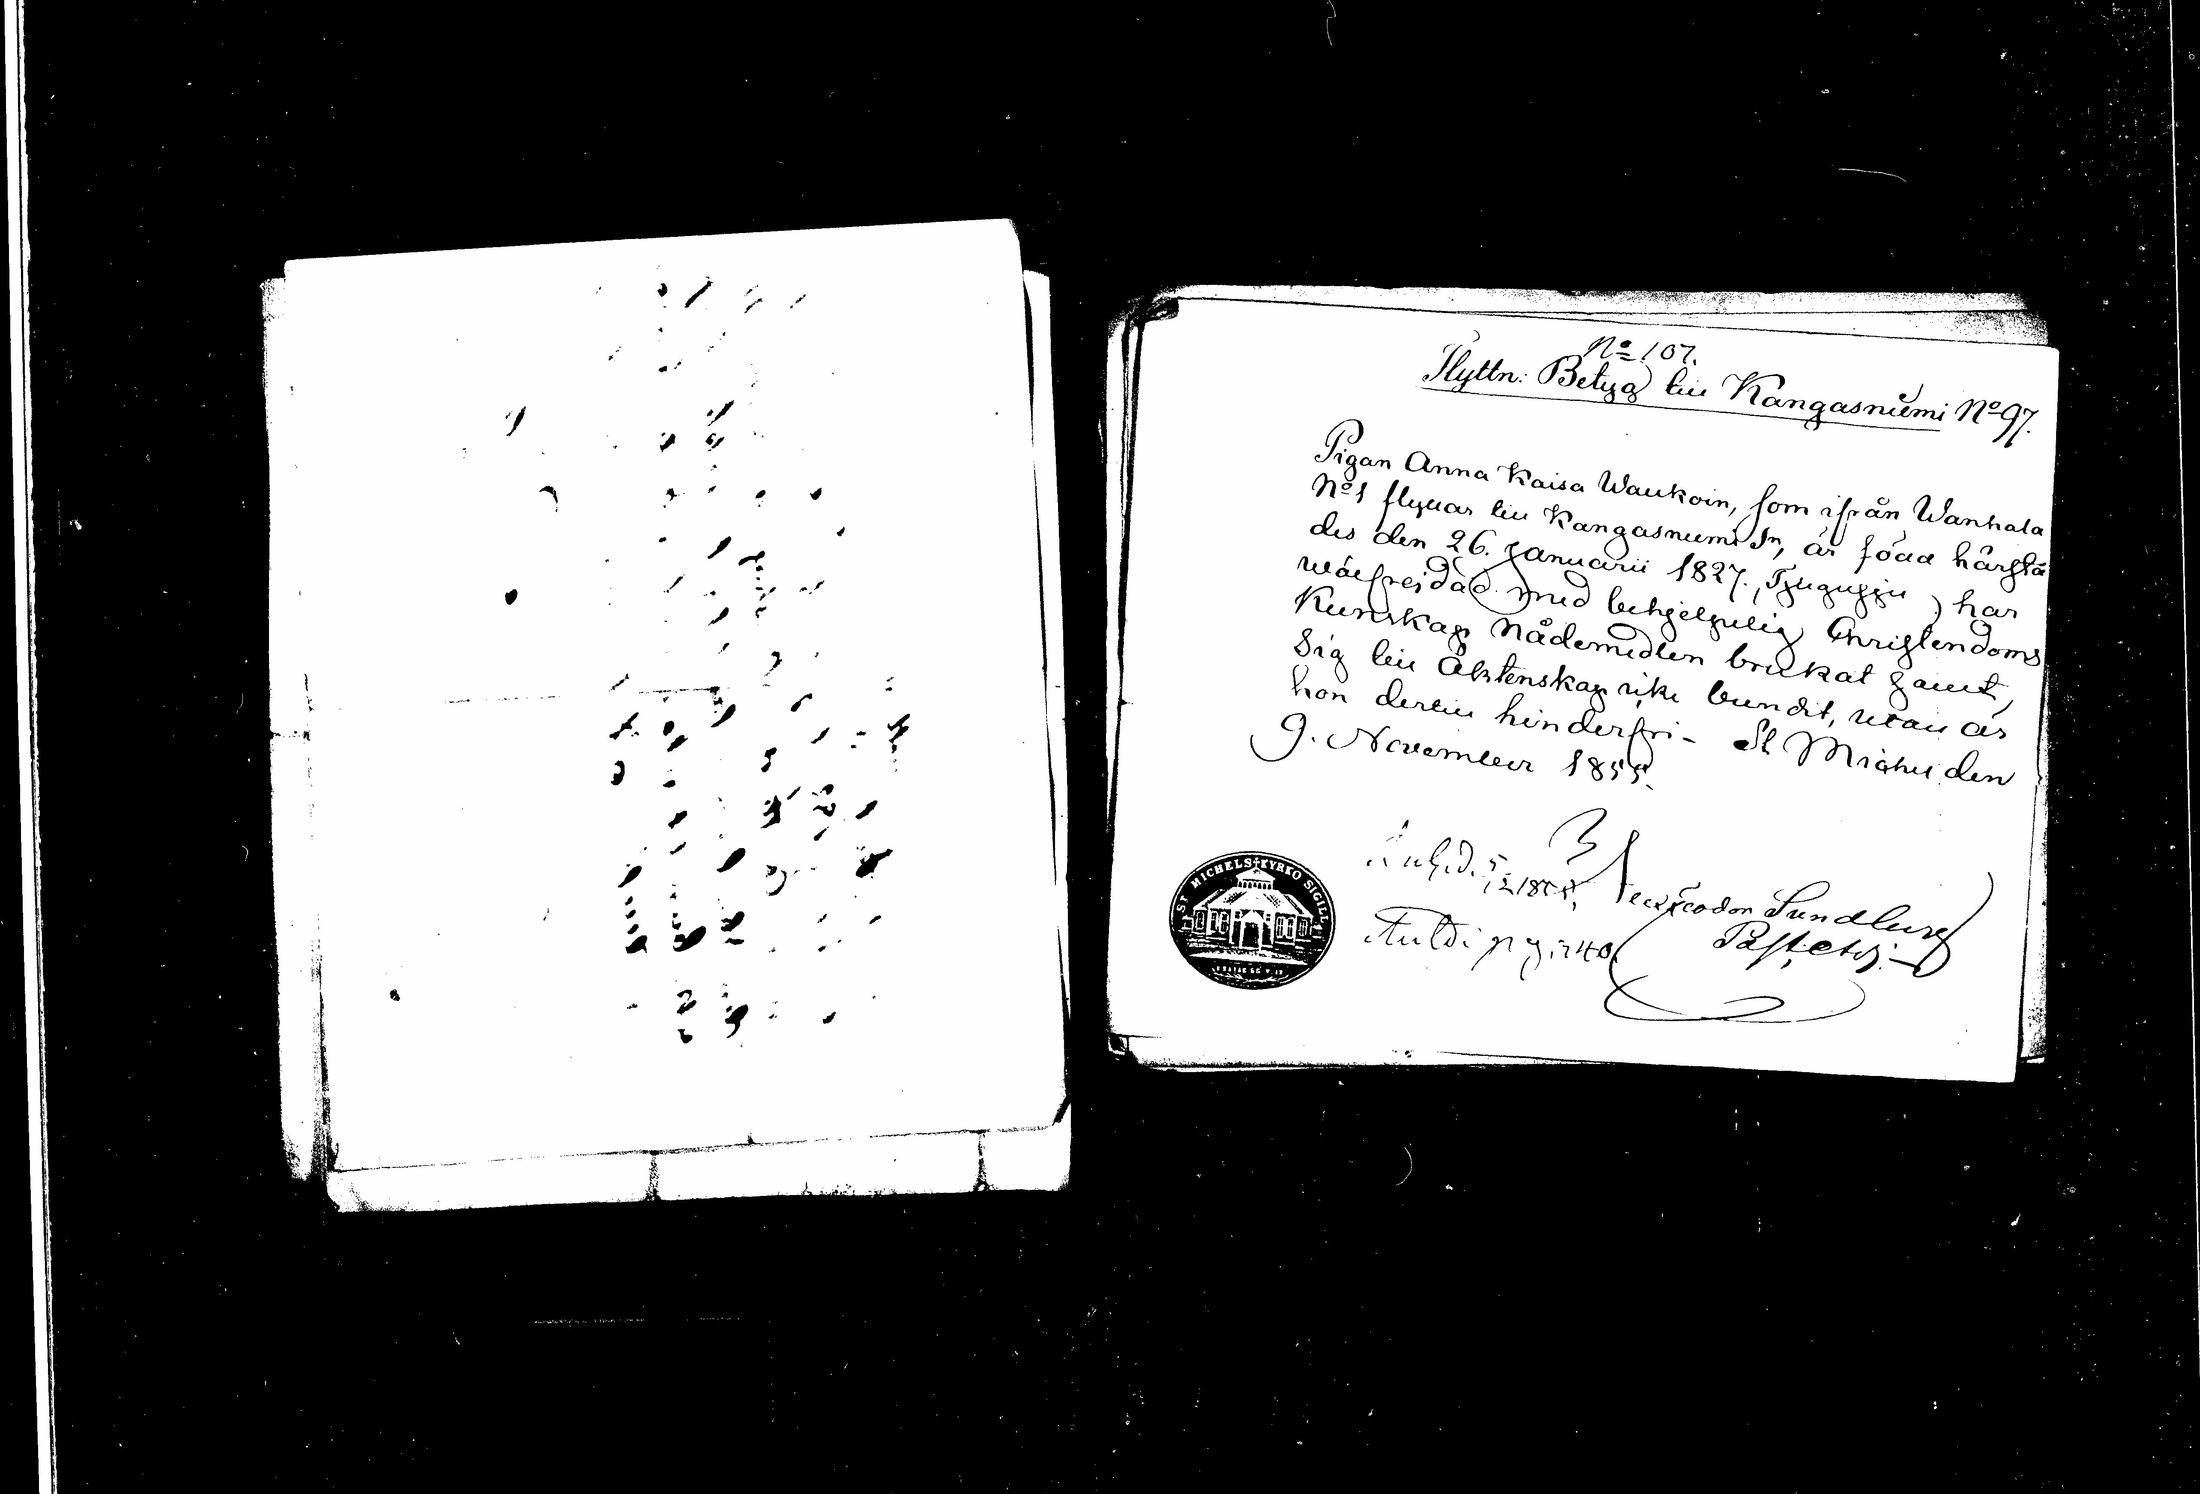 No 107.
Flyttn: Betyg till Kangasniemi No 97.
Pigan Anna Kaisa Waukoin, som ifrån Wanhala
No 1 flyttar till Kangasniemi Sn, är född härstä
des den 26. Januarii 1827., har
wälfrejdad med behjelpelig Christendoms
Kunskap Nådemedlen brukat samt
Sig till Äktenskap icke bundit, utan är
hon dertill hinderfri - St Michel den
9. November 1855.
ST MICHELS KYRKO SIGILL
Sundberg
Past: